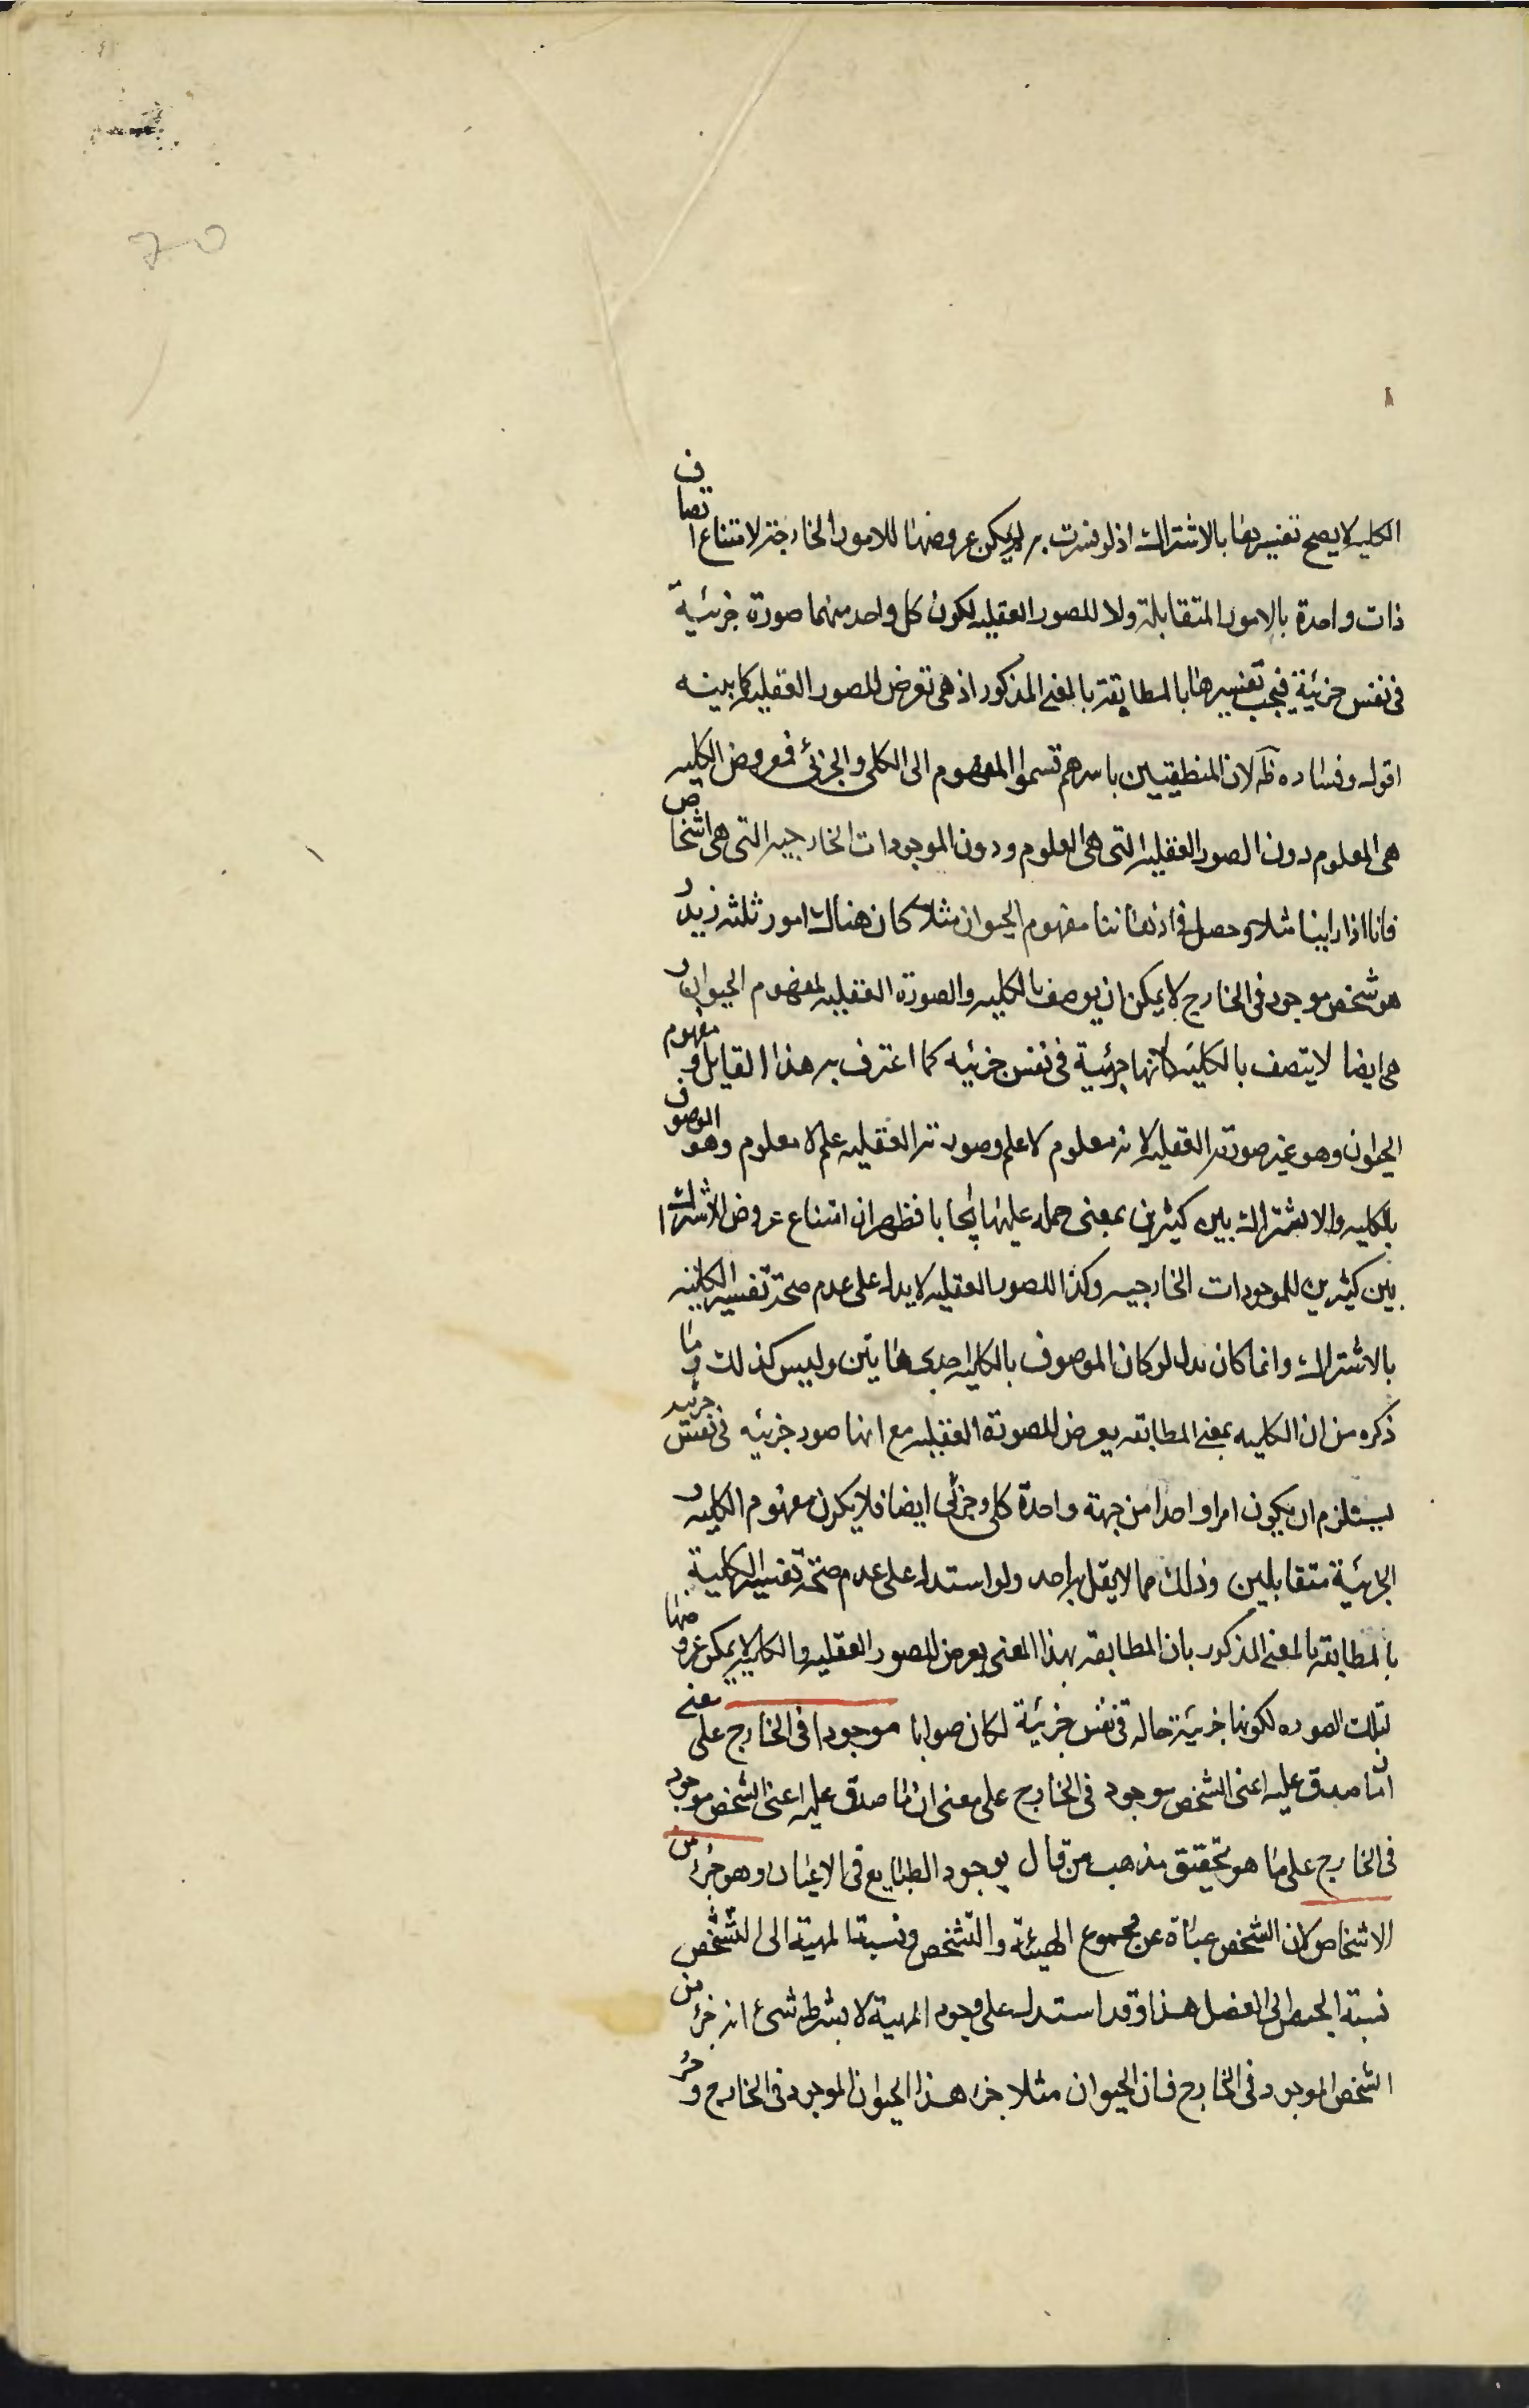 الكليه لا يصح تفسيرها بالاشتراك اذ لو فسرت به لم يمكن عروضها للامور الخارجة لامتناع اتصاف
ذات واحدة بالامور المتقابلة ولا للصور العقليه لكون كل واحد منهما صورة جزئية
فى نفس جزئية فيجب تفسيرها بالمطابقة بالمعنى المذكور اذ هى تعرض للصور العقليه كما بينه
اقول وفساده ظ لان المنطقيين باسرهم قسموا المفهوم الى الكلى والجزئى فمعروض الكليه
هى المعلوم دون الصور العقليه التى هى العلوم ودون الموجودات الخارجيه التى هى اشخاص
فانا اذا راينا مثلا وحصل فى اذهاننا مفهوم الحيوان مثلا كان هناك امور ثلثه زيد و
هو شخص موجود فى الخارج لا يمكن ان يوصف بالكليه والصورة العقليه لمفهوم الحيوان و
هى ايضا لا يتصف بالكليه لانها جزئية فى نفس جزئيه كما اعترف به هذا القايل و مفهوم
الحيوان وهو غير صورته العقليه لانه معلوم لا علم وصورته العقليه علم لا معلوم وهو الموصوف
بالكليه والاشتراك بين كثيرين بمعنى حمله عليها ايجابا فظهر ان امتناع عروض الاشتراك
بين كثيرين للموجودات الخارجيه وكذا للصور العقليه لا يدل على عدم صحة تفسير الكلية
بالاشتراك وانما كان يدل لو كان الموصوف بالكليه احدى هاتين وليس كذلك وما
ذكره من ان الكليه بمعنى المطابقه يعرض للصورة العقليه مع انها صور جزئيه فى نفس جزئيه
يستلزم ان يكون امرا واحدا من جهة واحدة كلى وجزئى ايضا فلا يكون مفهوم الكليه و
الجزئية متقابلين وذلك مما لا يقل به احد ولو استدل على عدم صحة تفسير الكلية
بالمطابقه بالمعنى المذكور بان المطابقه بهذا المعنى يعرض للصور العقليه والكليه لا يمكن عروضها
لتلك الصوره لكونها جزئية حاله فى نفس جزئية لكان صوابا موجودا فى الخارج على معنى
ان ما صدق عليه اعنى الشخص موجود فى الخارج على معنى ان ما صدق عليه اعنى الشخص موجود
فى الخارج على ما هو تحقيق مذهب من قال بوجود الطبايع فى الاعيان وهو جزء من
الاشخاص لان الشخص عبارة عن مجموع المهية والتشخص ونسبة المهية الى التشخص
نسبة الجنس الى الفصل هذا وقد استدل على وجود المهية لا بشرط شئ انه جزء من
الشخص الموجود فى الخارج فان الحيوان مثلا جزء هذا الحيوان الموجود فى الخارج و جزء